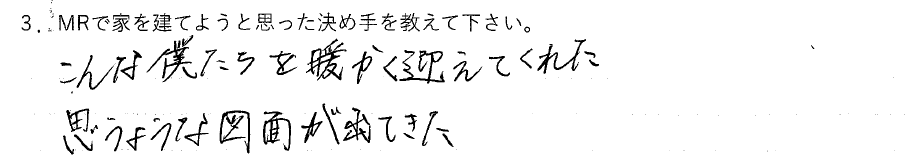 3. MRで家を建てようと思った決め手を教えて下さい。
こんな僕たちを暖かく迎えてくれた
思うような図面が出てきた